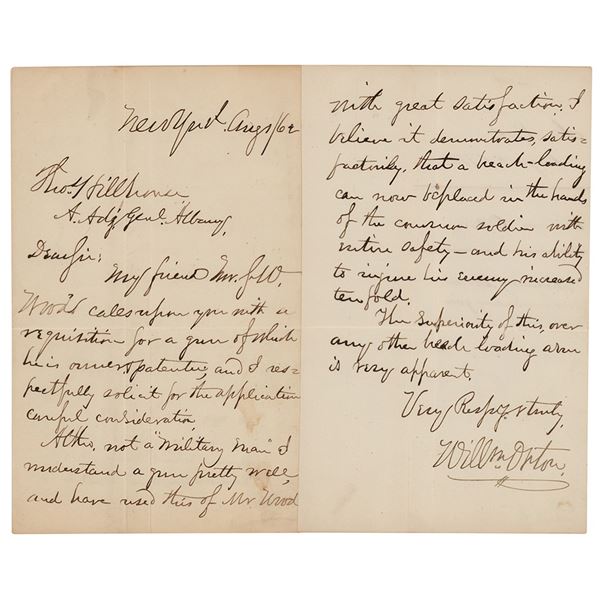 New York Aug 1/62
Thos. Hillhouse
A. Adj. Genl. Albany,
Dear Sir:
My friend Mr.
Wood calls upon you with a
requisition for a gun of which
he is owner & patentee, and I res=
pectfully solicit for the application
careful consideration,
Altho. not a "military man" I
understand a gun pretty well,
and have used this of Mr. Wood
with great satisfaction. I
believe it demonstrates, satis=
factorily, that a breach-loading
can now be placed in the hands
of the common soldier with
entire safety - and his ability
to injure his enemy increased
ten fold.
The superiority of this, over
any other breach loading arm
is very apparent.
Very Respy. & truly,
Willm. Orton.